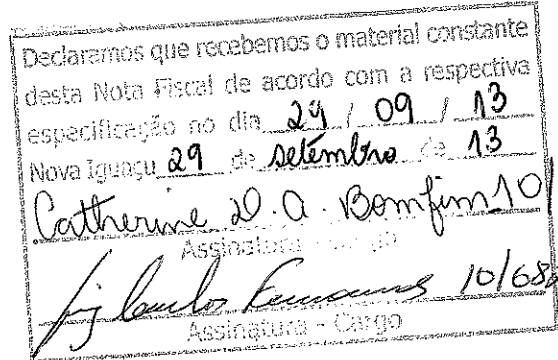 Declaramos que recebemos o material constante
desta Nota Fiscal de acordo com a respectiva
especificação no dia 29 / 09 / 13
Nova Iguaçu 29 de setembro de 13
Catherine D. A. Bomfim 10/
Assinatura - Cargo
Luiz Carlos 10/68
Assinatura - Cargo